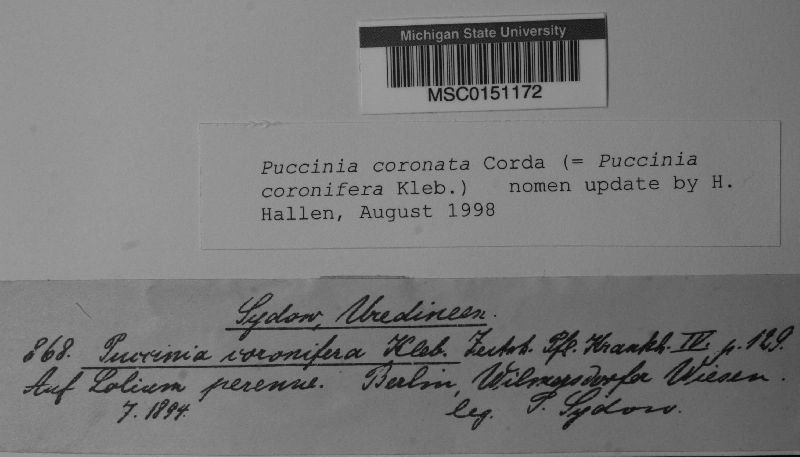 Michigan State University
MSC0151172
Puccinia coronata Corda (= Puccinia
coronifera Kleb.) nomen update by H.
Hallen, August 1998
Sydow, Uredineen.
868. Puccinia coronifera Kleb. Zeitsch. Pfl. Krankh. IV. p. 129.
Auf Lolium perenne. Berlin, Wilmersdorfer Wiesen.
7. 1894. leg. P. Sydow.